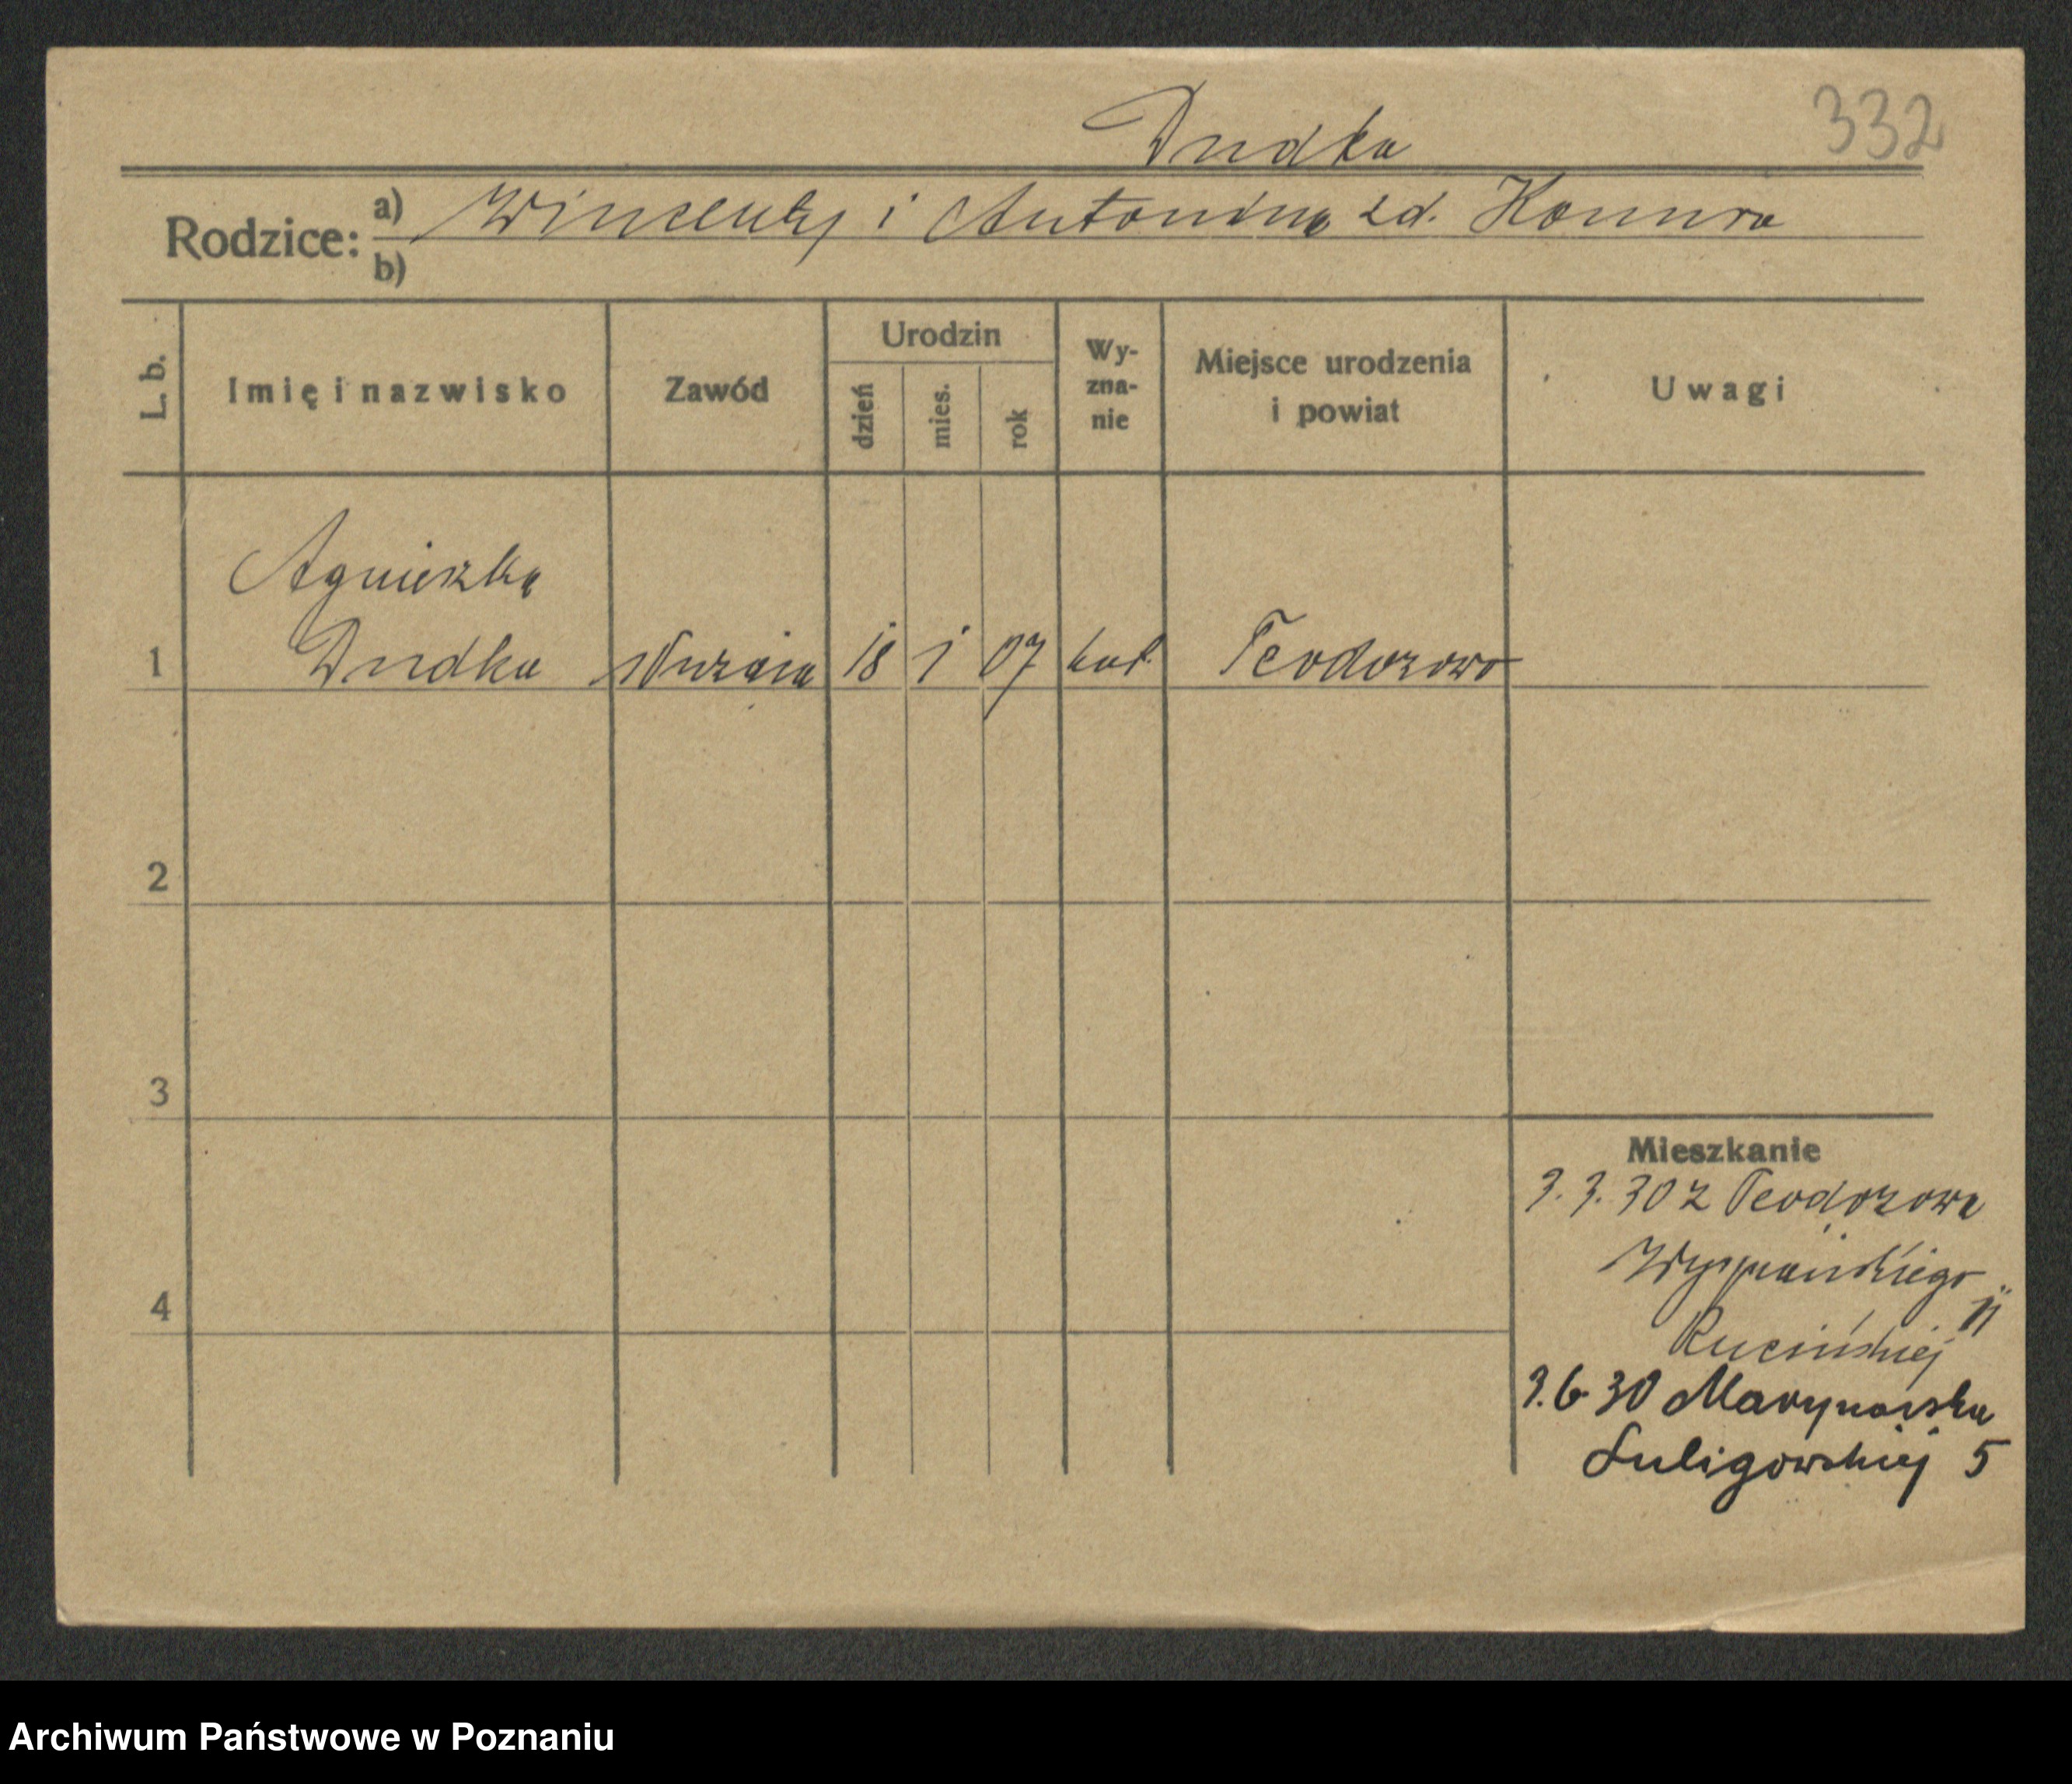 332
Dudka
Rodzice: a) Wincenty i Antonina zd. Konura
b)
L. b. Imię i nazwisko Zawód Urodzin dzień mies. rok Wy-zna-nie Miejsce urodzenia i powiat Uwagi
Agnieszka
1 Dudka 18 1 07 kat. Teodorowo
2
3
Mieszkanie
3. 3. 30 z Teodorowa
Wyspiańskiego 11
4
Rucińskiej
3. 6 30 Marynarska
Suligowskiej 5
Archiwum Państwowe w Poznaniu